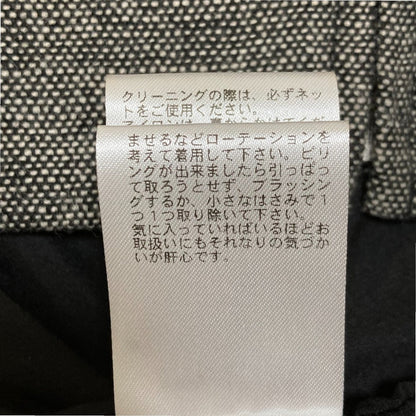 クリーニングの際は、必ずネッ
トをご使用ください。
ませるなどローテーションを
考えて着用して下さい。ピリ
ングが出来ましたら引っぱっ
て取ろうとせず、ブラッシン
グするか、小さなはさみで1
つ1つ取り除いて下さい。
気に入っていればいるほどお
取扱いにもそれなりの気づか
いが肝心です。